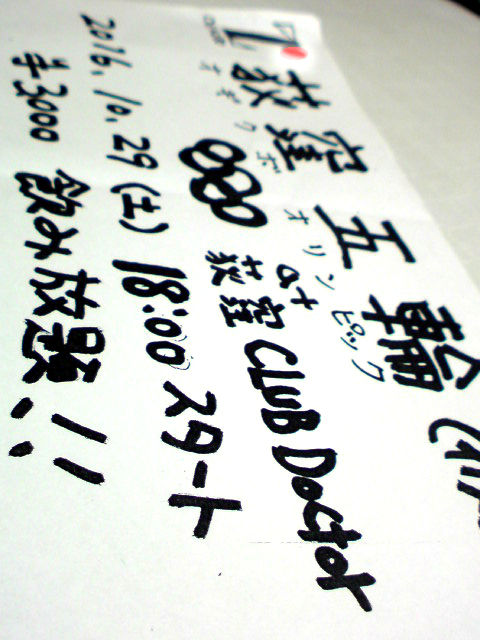 荻窪五輪
オギクボ オリンピック
at
荻窪 CLUB Doctor
2016.10.29(土) 18:00 スタート
¥3000 飲み放題!!